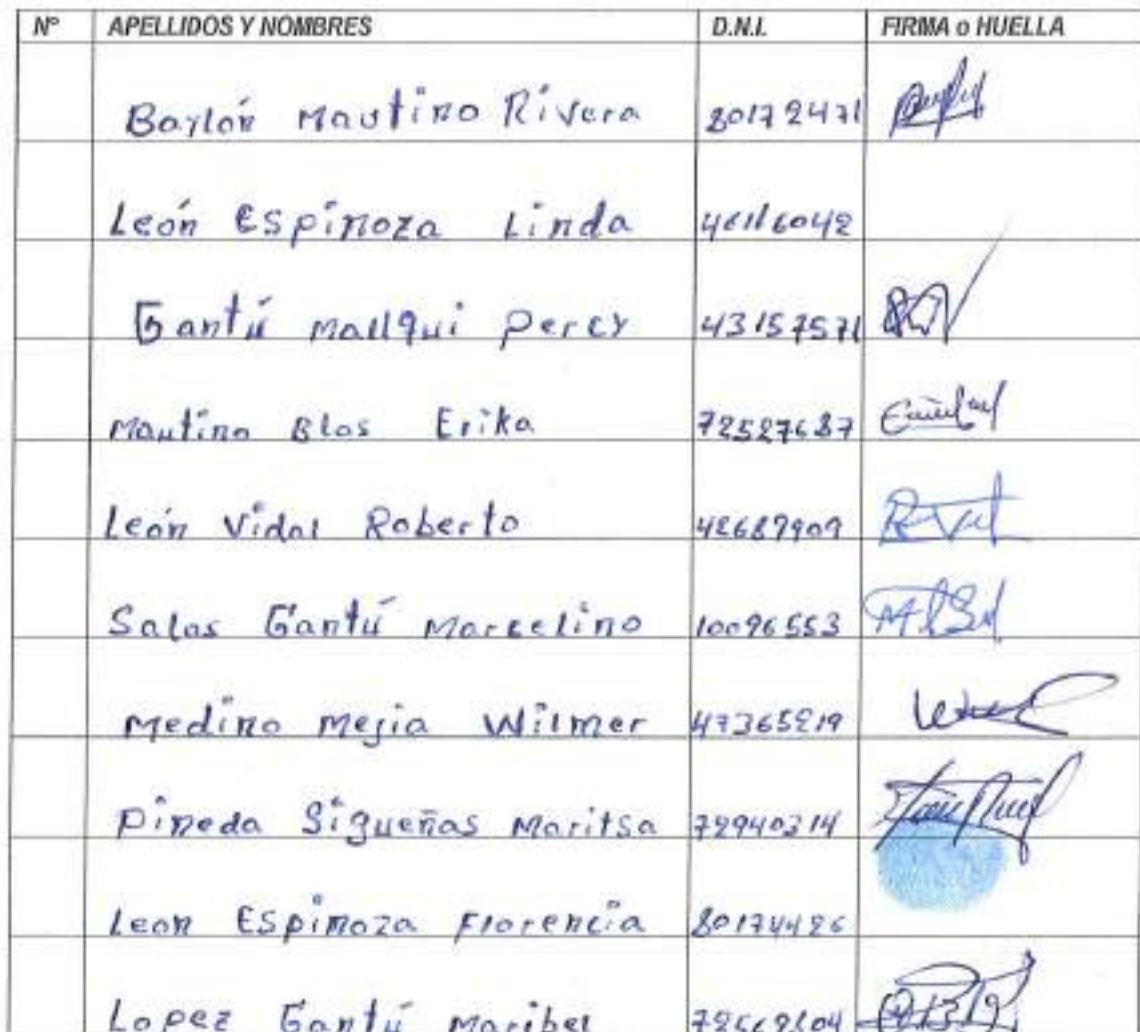 N° APELLIDOS Y NOMBRES D.N.I. FIRMA o HUELLA
Baylón Mautino Rivera 80172471
León Espinoza Linda 46116042
Gantú Mallqui Percy 43157571
Mautino Blas Erika 72527687
León Vidal Roberto 42687909
Salas Gantú Marcelino 10096553
Medina Mejia Wilmer 47365219
Pineda Sigueñas Maritsa 72940314
Leon Espinoza Florencia 80174426
Lopez Gantú Maribel